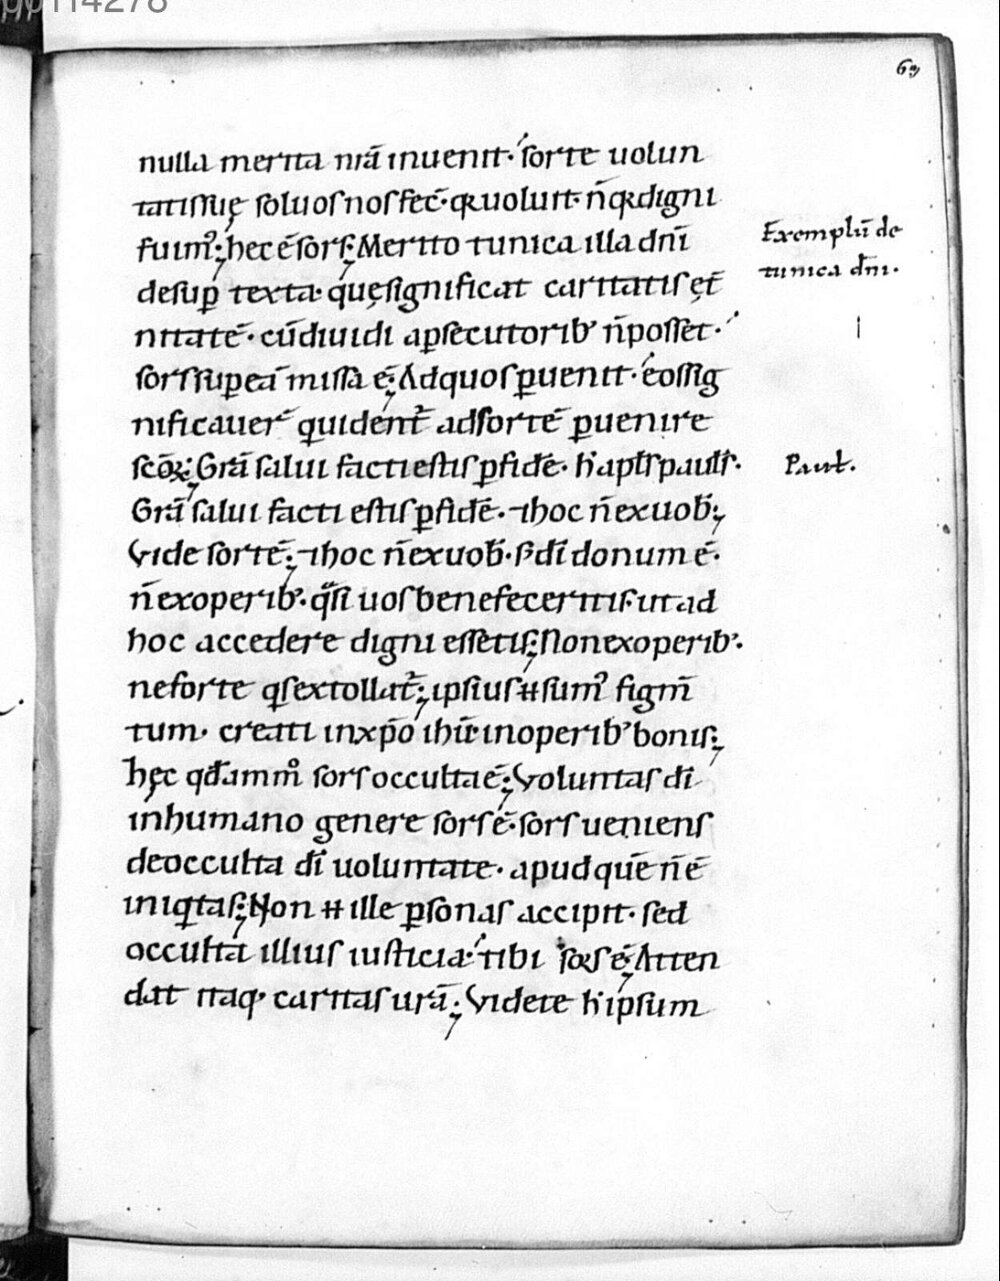 69
nulla merita nr̄ā inuenit· sorte uolun
tatis suę saluos nos fec̄· q̇a uoluit· n̄ q̇a digni
fuim᷒; hec ē sors; Merito tunica illa dn̄i
desup̱ texta· quę significat caritatis ęt̄
nitatē· cū diuidi a p̱secutorib' n̄ posset·
sors sup eā missa ē; Ad quos p̱uenit· eos sig
nificauer̄ qui ident̄ ad sortē p̱uenire
sc̄oꝝ; Gr̄ā salui facti estis p̱ fidē· h' apl̄s paul᷒·
Gr̄ā salui facti estis p̱ fidē· ⁊ hoc n̄ ex uob̄;
Vide sortē; ⁊ hoc n̄ ex uob̄· s; dī donum ē·
n̄ ex operib'· q̇si uos benefeceritis· ut ad
hoc accedere digni essetis; Non ex operib'·
ne forte q̇s extollat᷒; ipsius ⧺ sum᷒ figm̄
tum· creati in xp̄o ih̄u in operib' bonis;
hęc q̇dāmm᷒ sors occulta ē; Voluntas dī
in humano genere sors ē· sors ueniens
de occulta dī uoluntate· apud quē n̄ ē
iniq̇tas; Non ⧺ ille p̱sonas accipit· sed
occulta illius iusticia· tibi sors ē; Atten
dat itaq· caritas ur̄ā; Videte h' ipsum
Exemplū de
tunica dn̄i·
Paul̄·